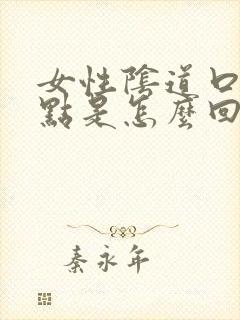 女性陰道口
點是怎麼回
秦永年